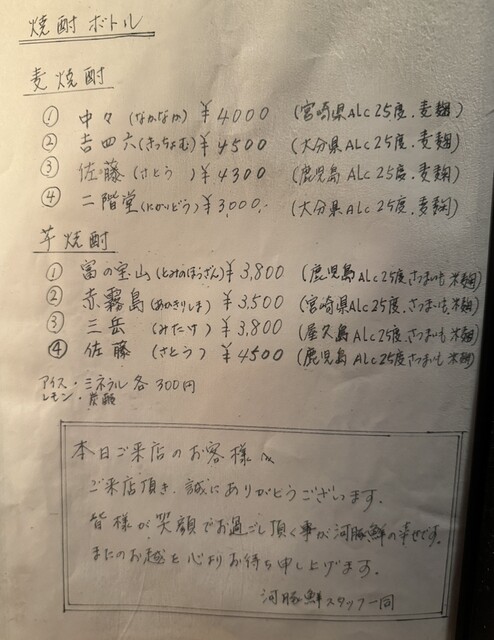 焼酎ボトル
麦焼酎
① 中々 (なかなか) ¥4000 (宮崎県Alc25度.麦麹)
② 吉四六(きっちょむ) ¥4500 (大分県Alc25度.麦麹)
③ 佐藤 (さとう) ¥4300 (鹿児島Alc25度.麦麹)
④ 二階堂(にかいどう) ¥3000. (大分県Alc25度.麦麹)
芋焼酎
① 富の宝山(とみのほうざん) ¥3,800 (鹿児島Alc25度.さつまいも 米麹)
② 赤霧島(あかきりしま) ¥3,500 (宮崎県Alc25度.さつまいも 米麹)
③ 三岳 (みたけ) ¥3,800 (屋久島Alc25度.さつまいも 米麹)
④ 佐藤 (さとう) ¥4500 (鹿児島Alc25度さつまいも 米麹)
アイス・ミネラル 各300円
レモン・炭酸
本日ご来店のお客様
ご来店頂き、誠にありがとうございます.
皆様が笑顔でお過ごし頂く事が河豚鮮の幸せです.
またのお越を心よりお待ち申し上げます.
河豚鮮スタッフ一同